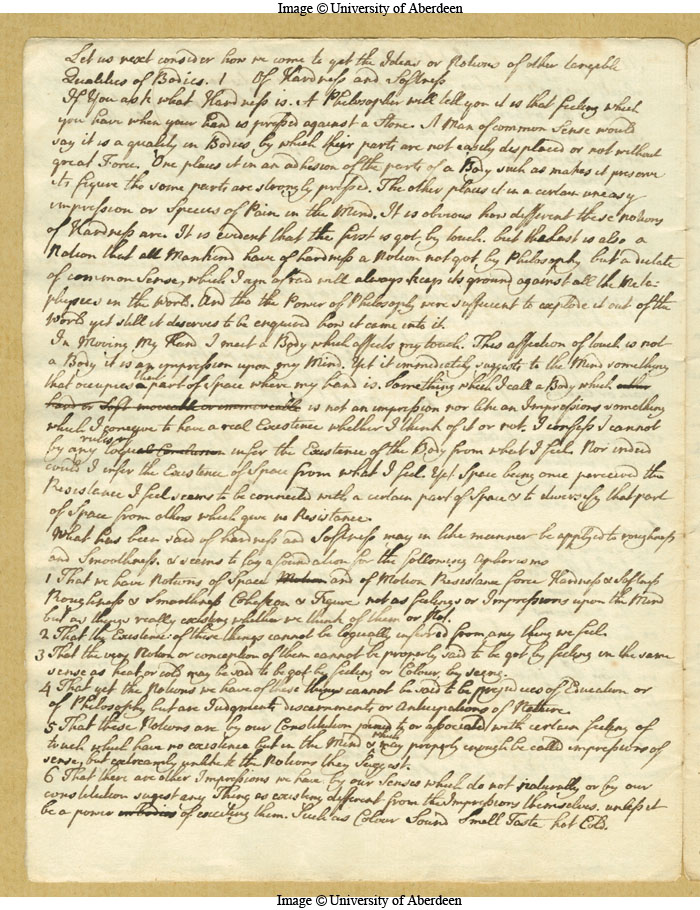 Image © University of Aberdeen
Let us next consider how we come to get the Ideas or Notions of other tangible
Qualities of Bodies. 1 Of Hardness and Softness
If You ask what Hardness is. A Philosopher will tell you it is that feeling which
you have when your hand is pressed against a Stone. A Man of common Sense would
say it is a quality in Bodies by which their parts are not easily displaced or not without
great Force. One places it in an adhesion of the parts of a Body such as makes it preserve
its figure tho some parts are strongly pressed. The other places it in a certain uneasy
impression or Species of Pain in the Mind. It is obvious how different these notions
of Hardness are. It is evident that the first is got by touch. but the last is also a
Notion that all Mankind have of hardness a Notion not got by Philosophy but a dictate
of common Sense, which I am afraid will always keep its ground against all the Meta-
physics in the World. And tho the Power of Philosophy were sufficient to explode it out of the
World yet still it deserves to be enquired how it came into it.
In Moving My Hand I meet a Body which affects my touch. This affection of touch is not
a Body it is an impression upon my Mind. Yet it immediately suggests to the Mind something
that occupies a part of Space where my hand is. Something which I call a Body which either
hard or Soft moveable or immoveable is not an impression nor like an Impressions something
which I conceive to have a real Existence whether I think of it or not. I confess I cannot
by any rules of logical Conclusion infer the Existence of the Body from what I feel. Nor indeed
could I infer the Existence of Space from what I feel. Yet Space being once perceived the
Resistance I feel seems to be connected with a certain part of Space & to diversify that part
of Space from others which give no Resistance.
What has been said of hardness and Softness may in like manner be applyed to roughness
and Smoothness. & seems to lay a foundation for the following Aphorisms
1 That we have Notions of Space Motion and of Motion Resistance force Hardness & Softness
Roughness & Smoothness Cohesion & Figure not as feelings or Impressions upon the Mind
but as things really existing whether we think of them or Not.
2 That the Existence of these things cannot be logically inferred from any thing we feel.
3 That the very Notion or conception of them cannot be properly said to be got by feeling in the same
sense as heat or cold may be said to be got by feeling or Colour by seeing.
4 That yet the Notions we have of these things cannot be said to be prejudices of Education or
of Philosophy but are Judgments discernments or Anticipations of Nature.
5 That these Notions are by our Constitution joined to or associated with certain feeling of
touch which have no existence but in the Mind & which may properly enough be called impressions of
sense, but extreamly unlike to the Notions they Suggest.
6 That there are other Impressions we have by our Senses which do not naturally or by our
constitution sugest any Thing as existing different from the Impressions themselves. unless it
be a power in bodies of exciting them. Such as Colour Sound Smell Taste hot Cold.
Image © University of Aberdeen